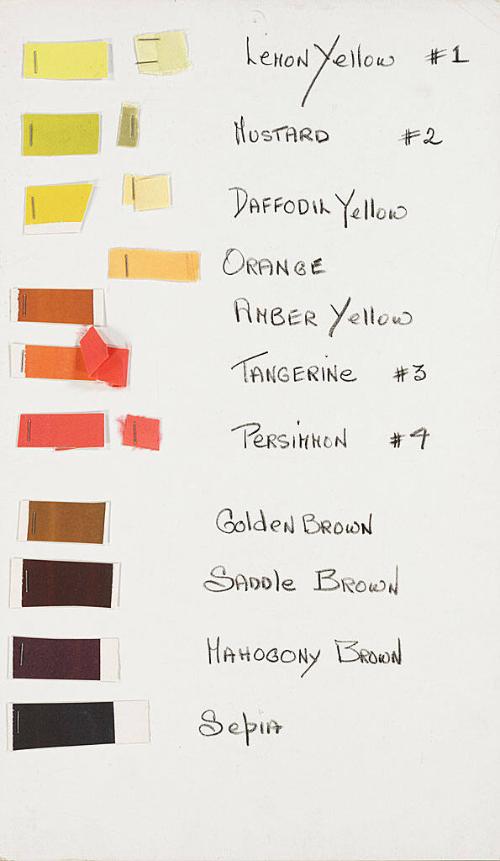 Lemon Yellow #1
Mustard #2
Daffodil Yellow
Orange
Amber Yellow
Tangerine #3
Persimmon #4
Golden Brown
Saddle Brown
Mahogony Brown
Sepia